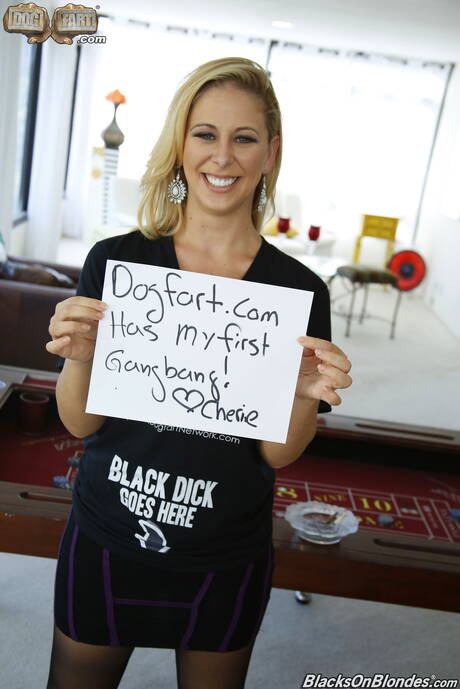 DOG FART
.com
Dogfart.com
Has my first
Gangbang!
♡Cherie
DogfartNetwork.com
BLACK DICK
GOES HERE
8 NINE 10
BlacksOnBlondes.com